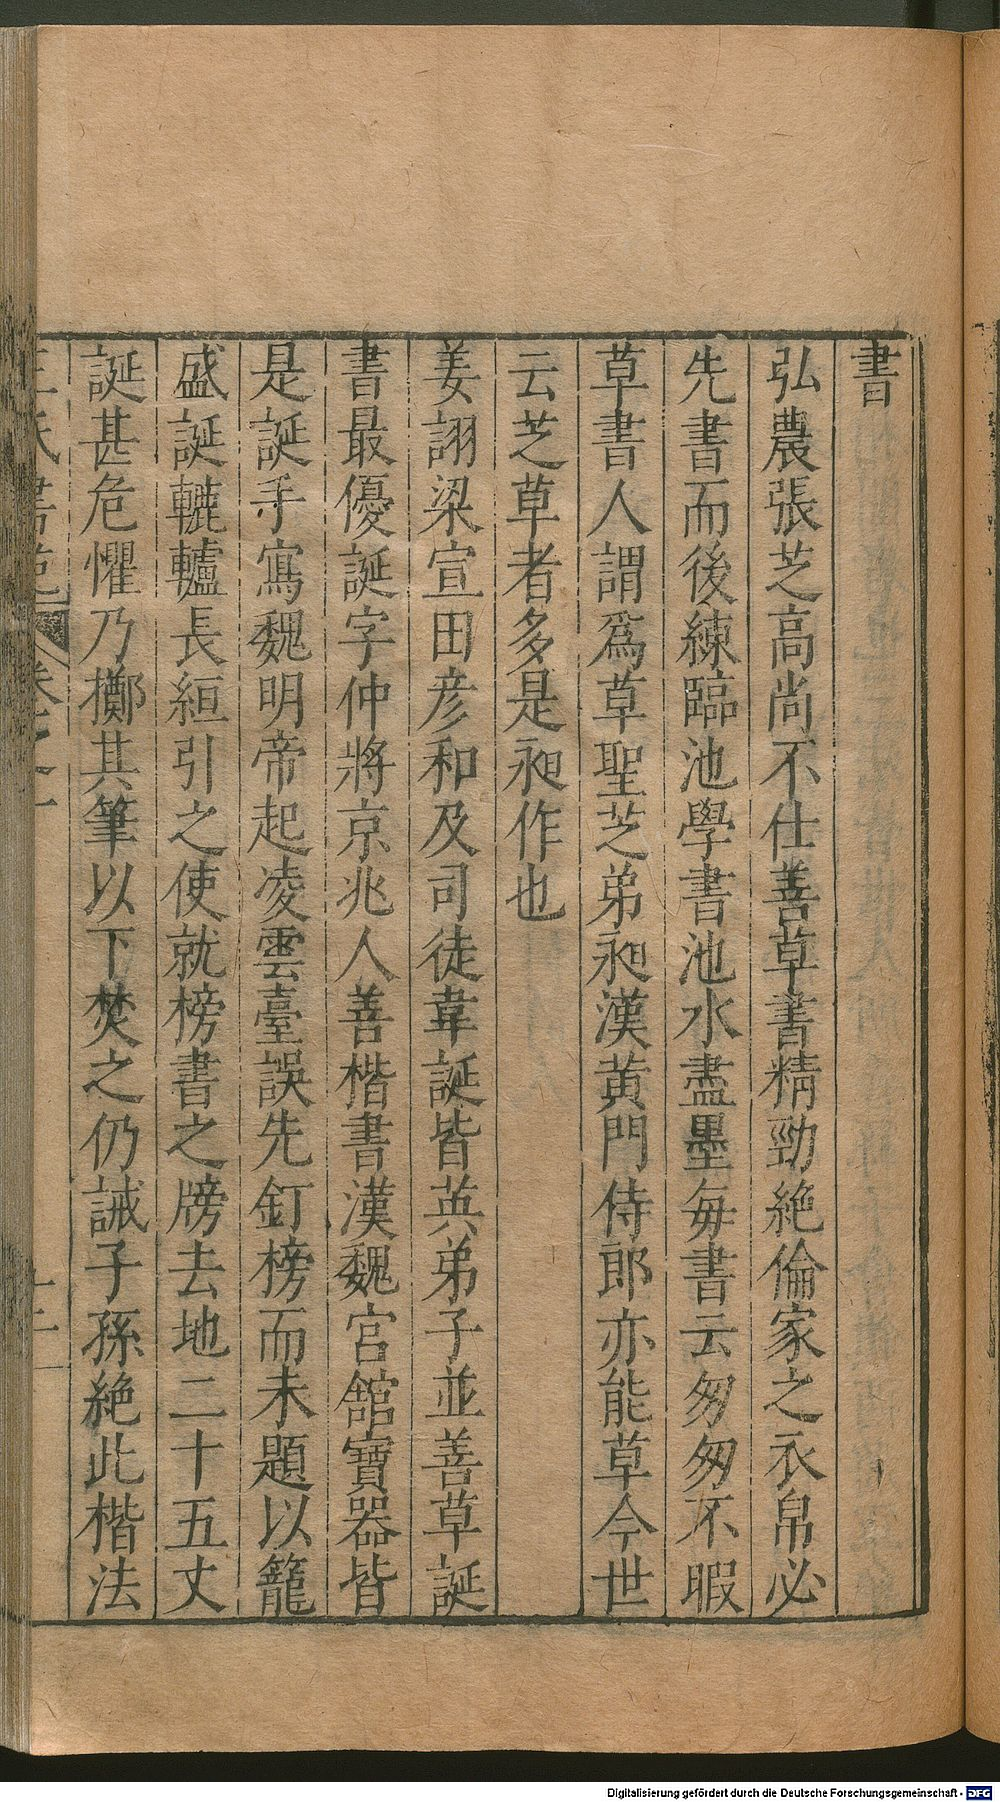 書
弘農張芝高尚不仕善草書精勁絶倫家之衣帛必
先書而後練臨池學書池水盡墨每書云匆匆不暇
草書人謂爲草聖芝弟昶漢黃門侍郎亦能草今世
云芝草者多是昶作也
姜詡梁宣田彦和及司徒韋誕皆英弟子並善草誕
書最優誕字仲將京兆人善楷書漢魏宮舘寶器皆
是誕手寫魏明帝起凌雲臺誤先釘榜而未題以籠
盛誕轆轤長絚引之使就榜書之牓去地二十五丈
誕甚危懼乃擲其筆以下焚之仍誡子孫絶此楷法
Digitalisierung gefördert durch die Deutsche Forschungsgemeinschaft - DFG